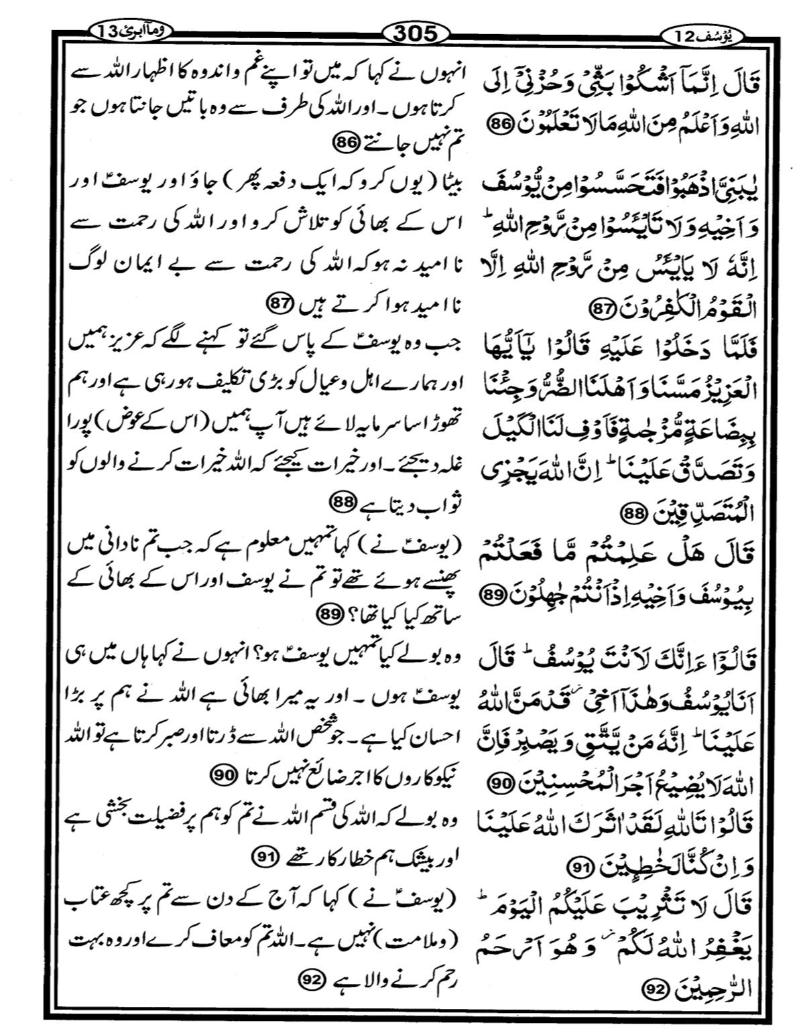 یُوسُف 12
305
وَمَآ اُبَرِّئُ 13
قَالَ اِنَّمَآ اَشْكُوْا بَثِّيْ وَحُزْنِيْٓ اِلَى
اللّٰهِ وَاَعْلَمُ مِنَ اللّٰهِ مَا لَا تَعْلَمُوْنَ 86
يٰبَنِيَّ اذْهَبُوْا فَتَحَسَّسُوْا مِنْ يُّوْسُفَ
وَاَخِيْهِ وَلَا تَايْـَٔسُوْا مِنْ رَّوْحِ اللّٰهِ ؕ
اِنَّهٗ لَا يَايْـَٔسُ مِنْ رَّوْحِ اللّٰهِ اِلَّا
الْقَوْمُ الْكٰفِرُوْنَ 87
فَلَمَّا دَخَلُوْا عَلَيْهِ قَالُوْا يٰٓاَيُّهَا
الْعَزِيْزُ مَسَّنَا وَاَهْلَنَا الضُّرُّ وَجِئْنَا
بِبِضَاعَةٍ مُّزْجٰىةٍ فَاَوْفِ لَنَا الْكَيْلَ
وَتَصَدَّقْ عَلَيْنَا ؕ اِنَّ اللّٰهَ يَجْزِي
الْمُتَصَدِّقِيْنَ 88
قَالَ هَلْ عَلِمْتُمْ مَّا فَعَلْتُمْ
بِيُوْسُفَ وَاَخِيْهِ اِذْ اَنْتُمْ جٰهِلُوْنَ 89
قَالُوْٓا ءَاِنَّكَ لَاَنْتَ يُوْسُفُ ؕ قَالَ
اَنَا يُوْسُفُ وَهٰذَآ اَخِيْ ۡ قَدْ مَنَّ اللّٰهُ
عَلَيْنَا ؕ اِنَّهٗ مَنْ يَّتَّقِ وَيَصْبِرْ فَاِنَّ
اللّٰهَ لَا يُضِيْعُ اَجْرَ الْمُحْسِنِيْنَ 90
قَالُوْا تَاللّٰهِ لَقَدْ اٰثَرَكَ اللّٰهُ عَلَيْنَا
وَاِنْ كُنَّا لَخٰطِـِٕيْنَ 91
قَالَ لَا تَثْرِيْبَ عَلَيْكُمُ الْيَوْمَ ؕ
يَغْفِرُ اللّٰهُ لَكُمْ ۡ وَهُوَ اَرْحَمُ
الرّٰحِمِيْنَ 92
انہوں نے کہا کہ میں تو اپنے غم و اندوہ کا اظہار اللہ سے
کرتا ہوں ۔ اور اللہ کی طرف سے وہ باتیں جانتا ہوں جو
تم نہیں جانتے 86
بیٹا (یوں کرو کہ ایک دفعہ پھر) جاؤ اور یوسفؑ اور
اس کے بھائی کو تلاش کرو اور اللہ کی رحمت سے
نا امید نہ ہو کہ اللہ کی رحمت سے بے ایمان لوگ
نا امید ہوا کرتے ہیں 87
جب وہ یوسفؑ کے پاس گئے تو کہنے لگے کہ عزیز ہمیں
اور ہمارے اہل و عیال کو بڑی تکلیف ہو رہی ہے اور ہم
تھوڑا سا سرمایہ لائے ہیں آپ ہمیں (اس کے عوض) پورا
غلہ دیجئے ۔ اور خیرات کیجئے کہ اللہ خیرات کرنے والوں کو
ثواب دیتا ہے 88
(یوسفؑ نے) کہا تمہیں معلوم ہے کہ جب تم نادانی میں
پھنسے ہوئے تھے تو تم نے یوسف اور اس کے بھائی کے
ساتھ کیا کیا تھا؟ 89
وہ بولے کیا تمہیں یوسفؑ ہو؟ انہوں نے کہا ہاں میں ہی
یوسفؑ ہوں ۔ اور یہ میرا بھائی ہے اللہ نے ہم پر بڑا
احسان کیا ہے ۔ جو شخص اللہ سے ڈرتا اور صبر کرتا ہے تو اللہ
نیکوکاروں کا اجر ضائع نہیں کرتا 90
وہ بولے کہ اللہ کی قسم اللہ نے تم کو ہم پر فضیلت بخشی ہے
اور بیشک ہم خطا کار تھے 91
(یوسفؑ نے) کہا کہ آج کے دن سے تم پر کچھ عتاب
(و ملامت) نہیں ہے ۔ اللہ تم کو معاف کرے اور وہ بہت
رحم کرنے والا ہے 92